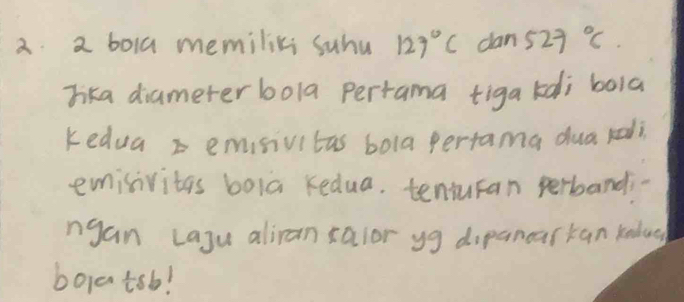 2. 2 bola memiliki suhu 127°C dan 527 °C.
Jika diameter bola pertama tiga kali bola
kedua & emisivitas bola pertama dua kali
emisivitas bola kedua. tentukan perbandi-
ngan laju aliran kalor yg dipancarkan kedua
bola tsb!